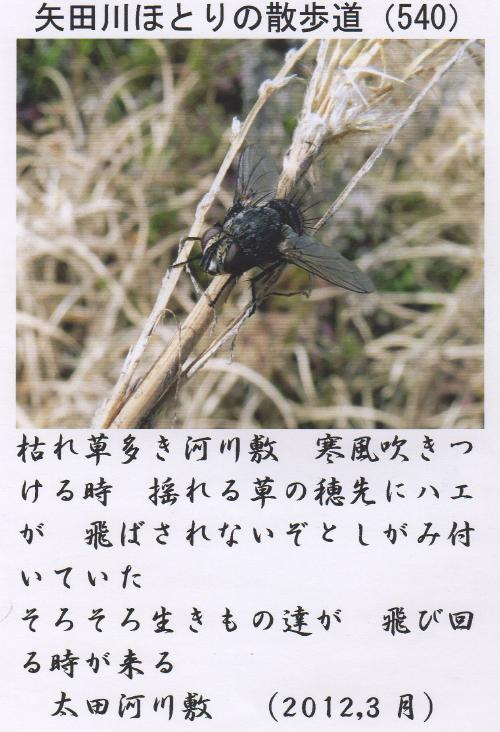 矢田川ほとりの散歩道（540）
枯れ草多き河川敷　寒風吹きつ
ける時　揺れる草の穂先にハエ
が　飛ばされないぞとしがみ付
いていた
そろそろ生きもの達が　飛び回
る時が来る
太田河川敷　（2012,3月）